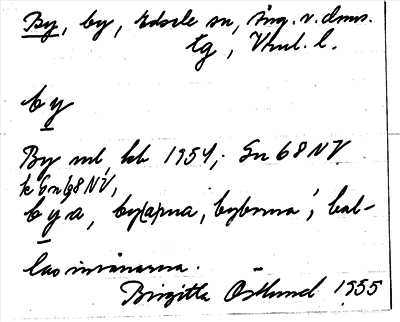 By, by, Edsele sn, Ång. v. dms.
tg, Vnul. l.
by
By ml kb 1954; Sn 68 NV
k Sn 68 NV,
bya, by(a)rna, bybrona, kal-
las invånarna.
Birgitta Östlund 1955